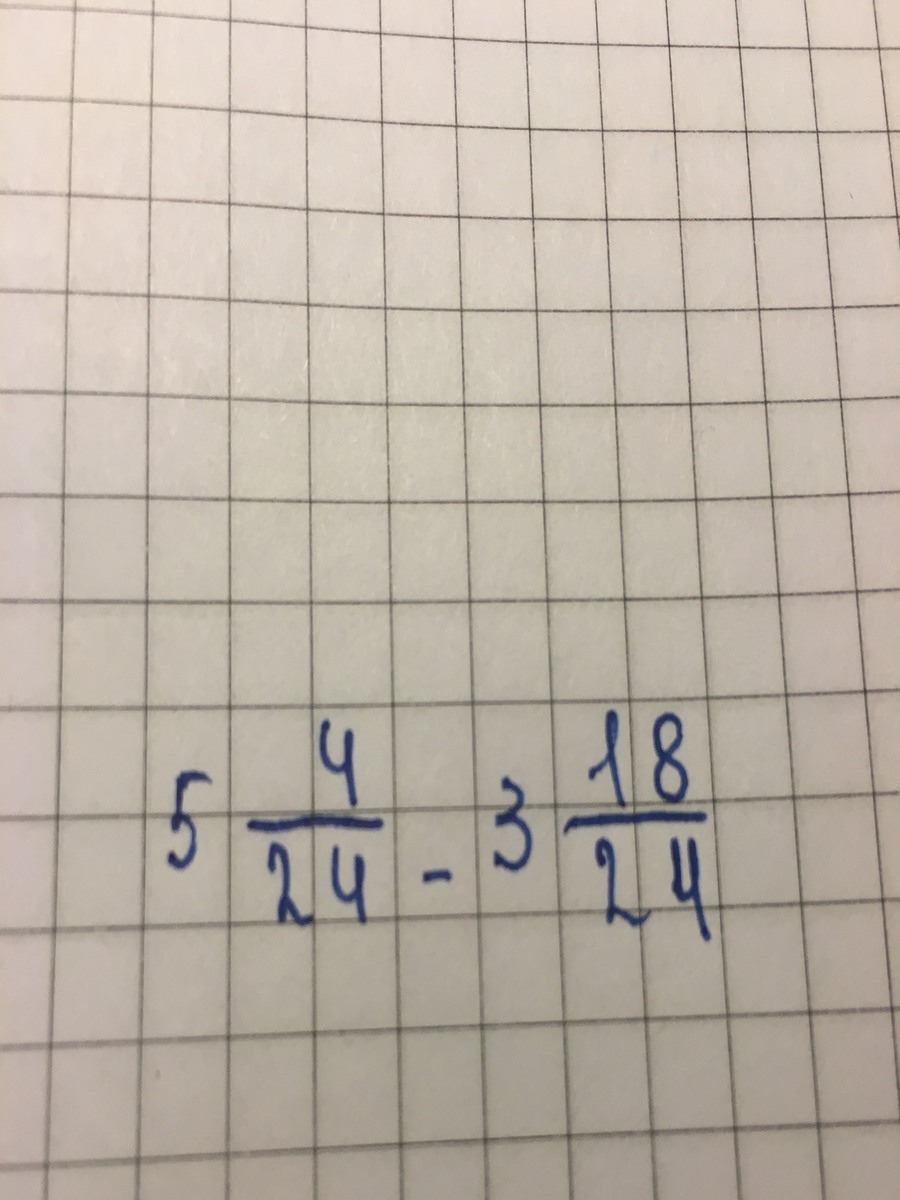 5 4/24 - 3 18/24